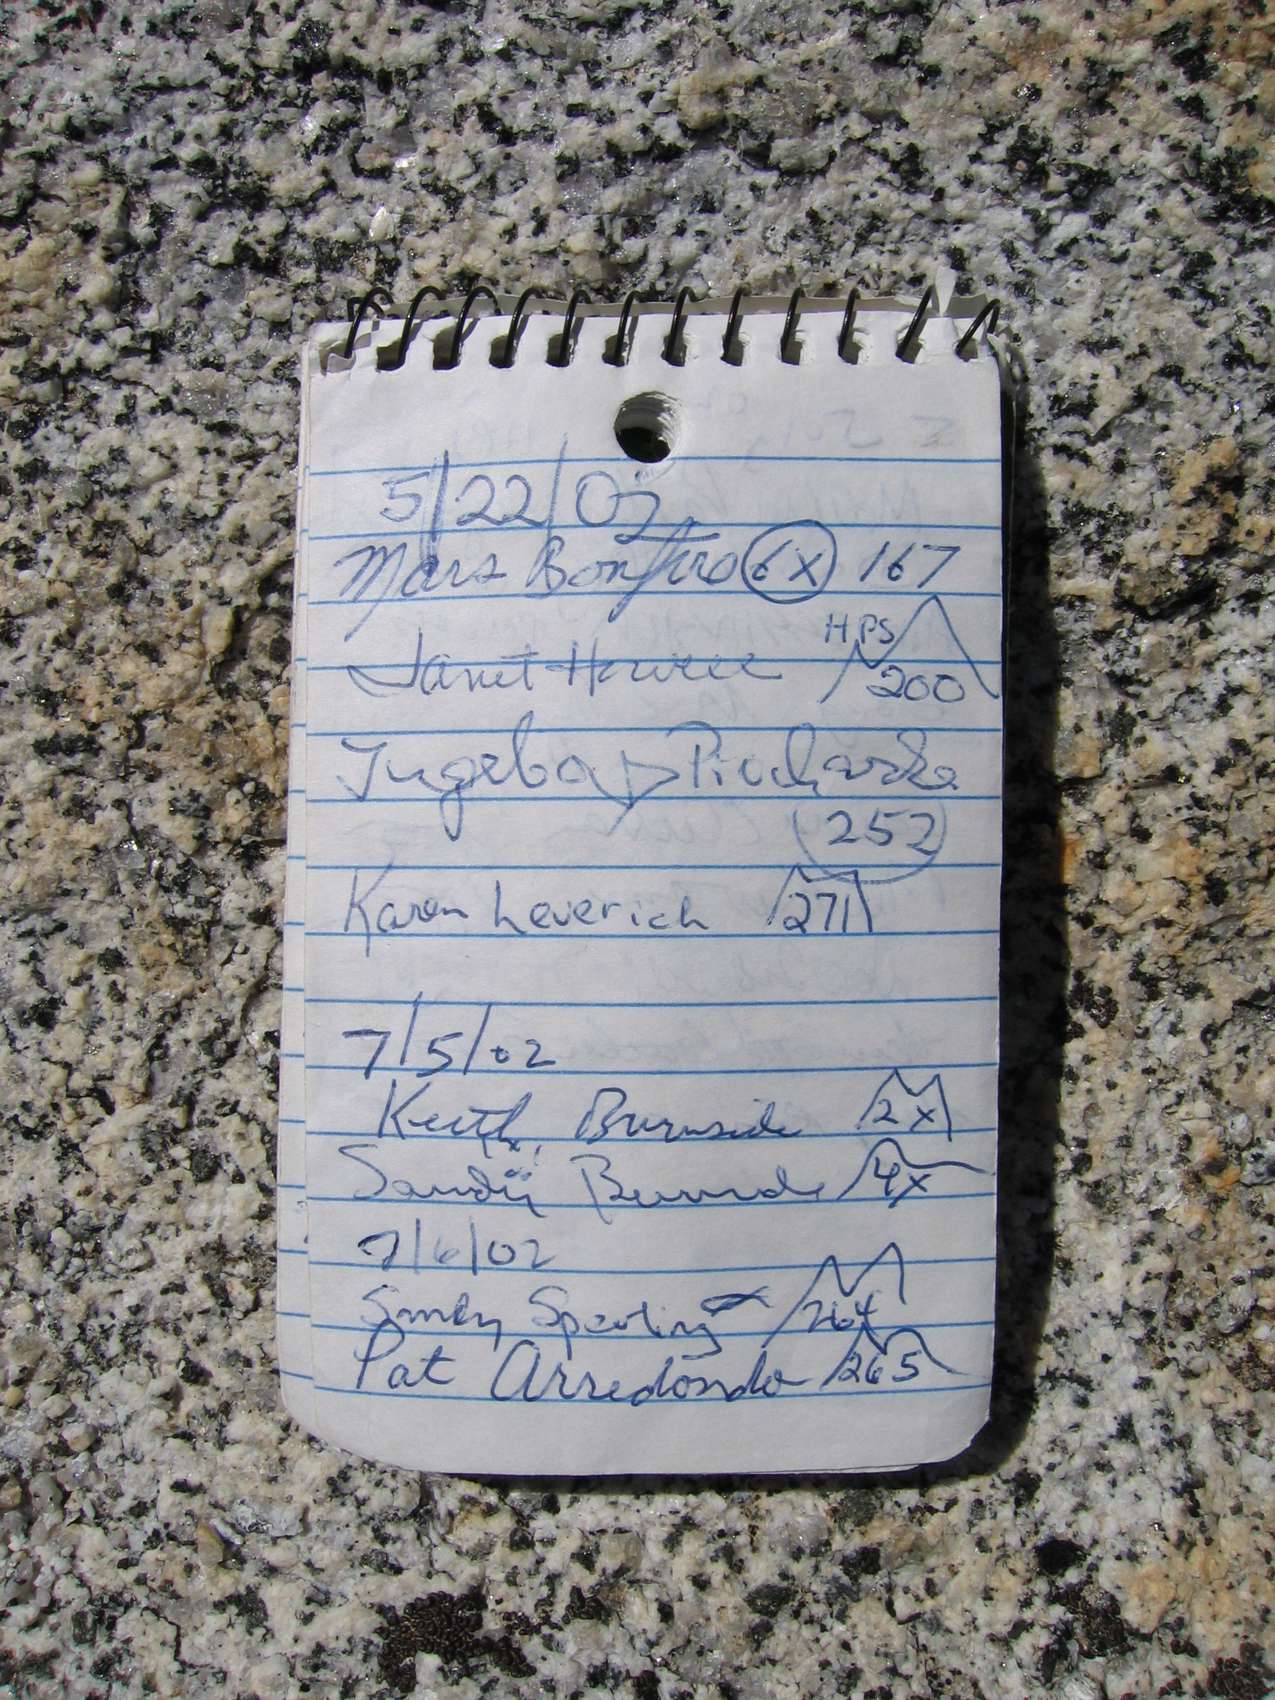 5/22/02
Mars Bonfire 6X 167
HPS
Janet Howell 200
Ingeborg Prochazka
252
Karen Leverich 271
7/5/02
Keith Burnside 2X
Sandy Burnside 4X
7/6/02
Sperling 264
Pat Arredondo 265